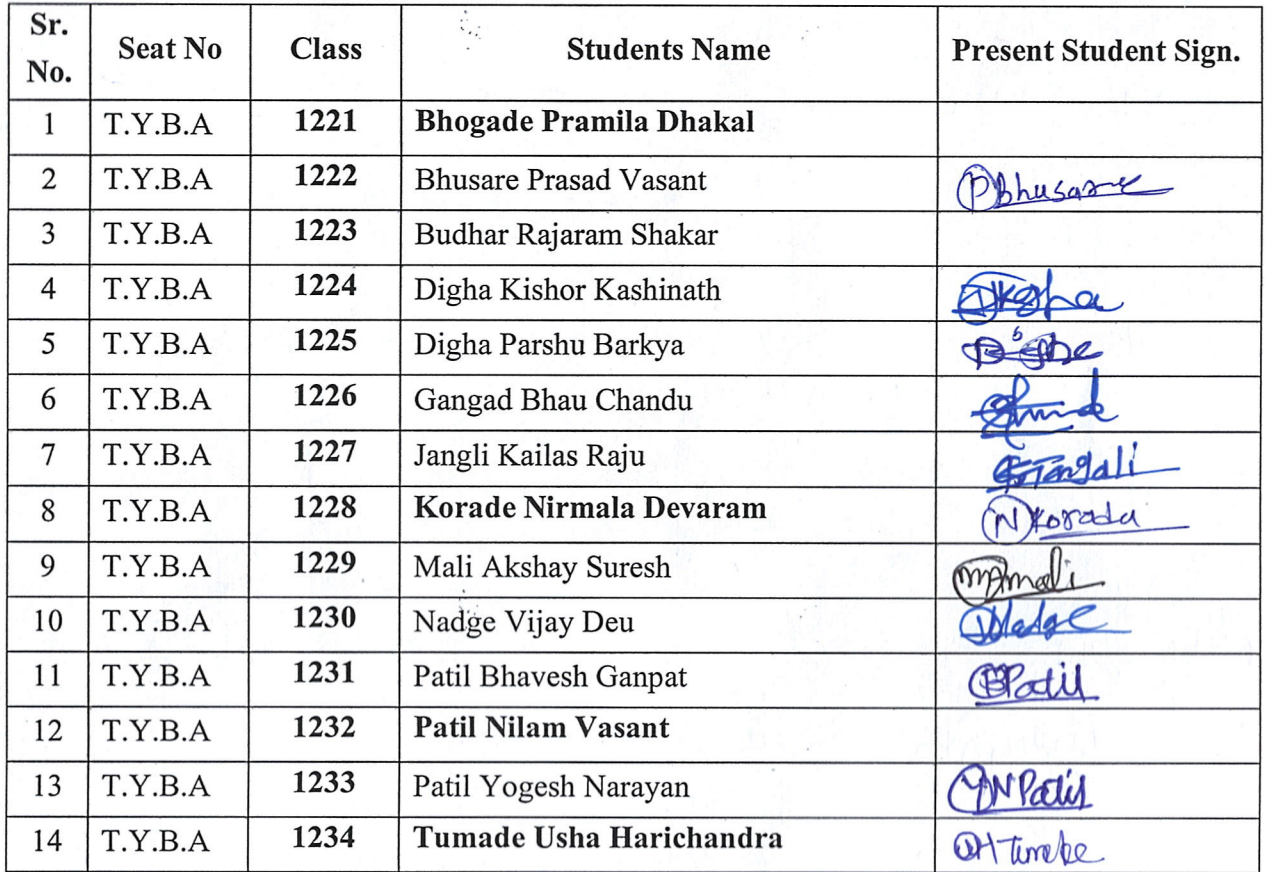 Sr. No. Seat No Class Students Name Present Student Sign.
1 T.Y.B.A 1221 Bhogade Pramila Dhakal
2 T.Y.B.A 1222 Bhusare Prasad Vasant PBhusare
3 T.Y.B.A 1223 Budhar Rajaram Shakar
4 T.Y.B.A 1224 Digha Kishor Kashinath
5 T.Y.B.A 1225 Digha Parshu Barkya
6 T.Y.B.A 1226 Gangad Bhau Chandu
7 T.Y.B.A 1227 Jangli Kailas Raju
8 T.Y.B.A 1228 Korade Nirmala Devaram N Korada
9 T.Y.B.A 1229 Mali Akshay Suresh
10 T.Y.B.A 1230 Nadge Vijay Deu
11 T.Y.B.A 1231 Patil Bhavesh Ganpat BPatil
12 T.Y.B.A 1232 Patil Nilam Vasant
13 T.Y.B.A 1233 Patil Yogesh Narayan YN Patil
14 T.Y.B.A 1234 Tumade Usha Harichandra